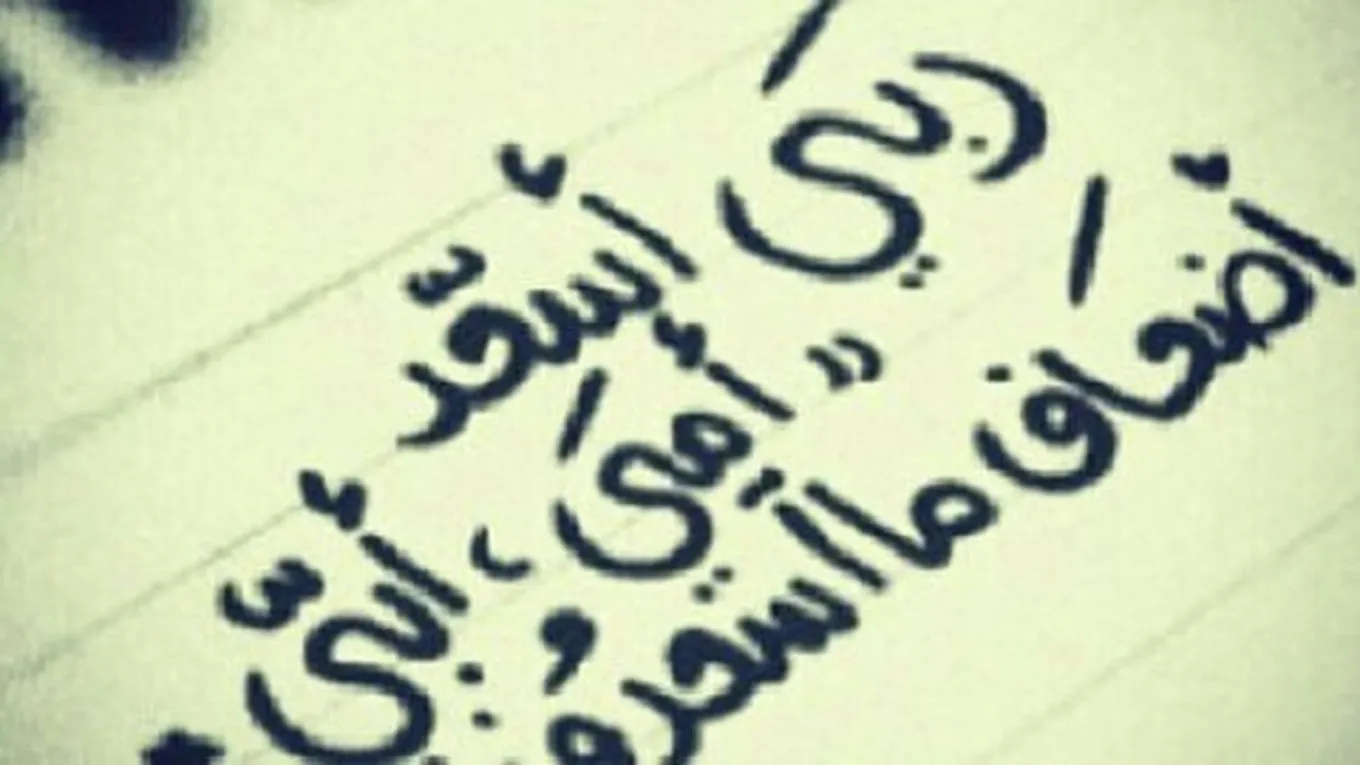 ربيَ أسعّد
" أميَ ، أبيّ
أضعاف ما أسعدو